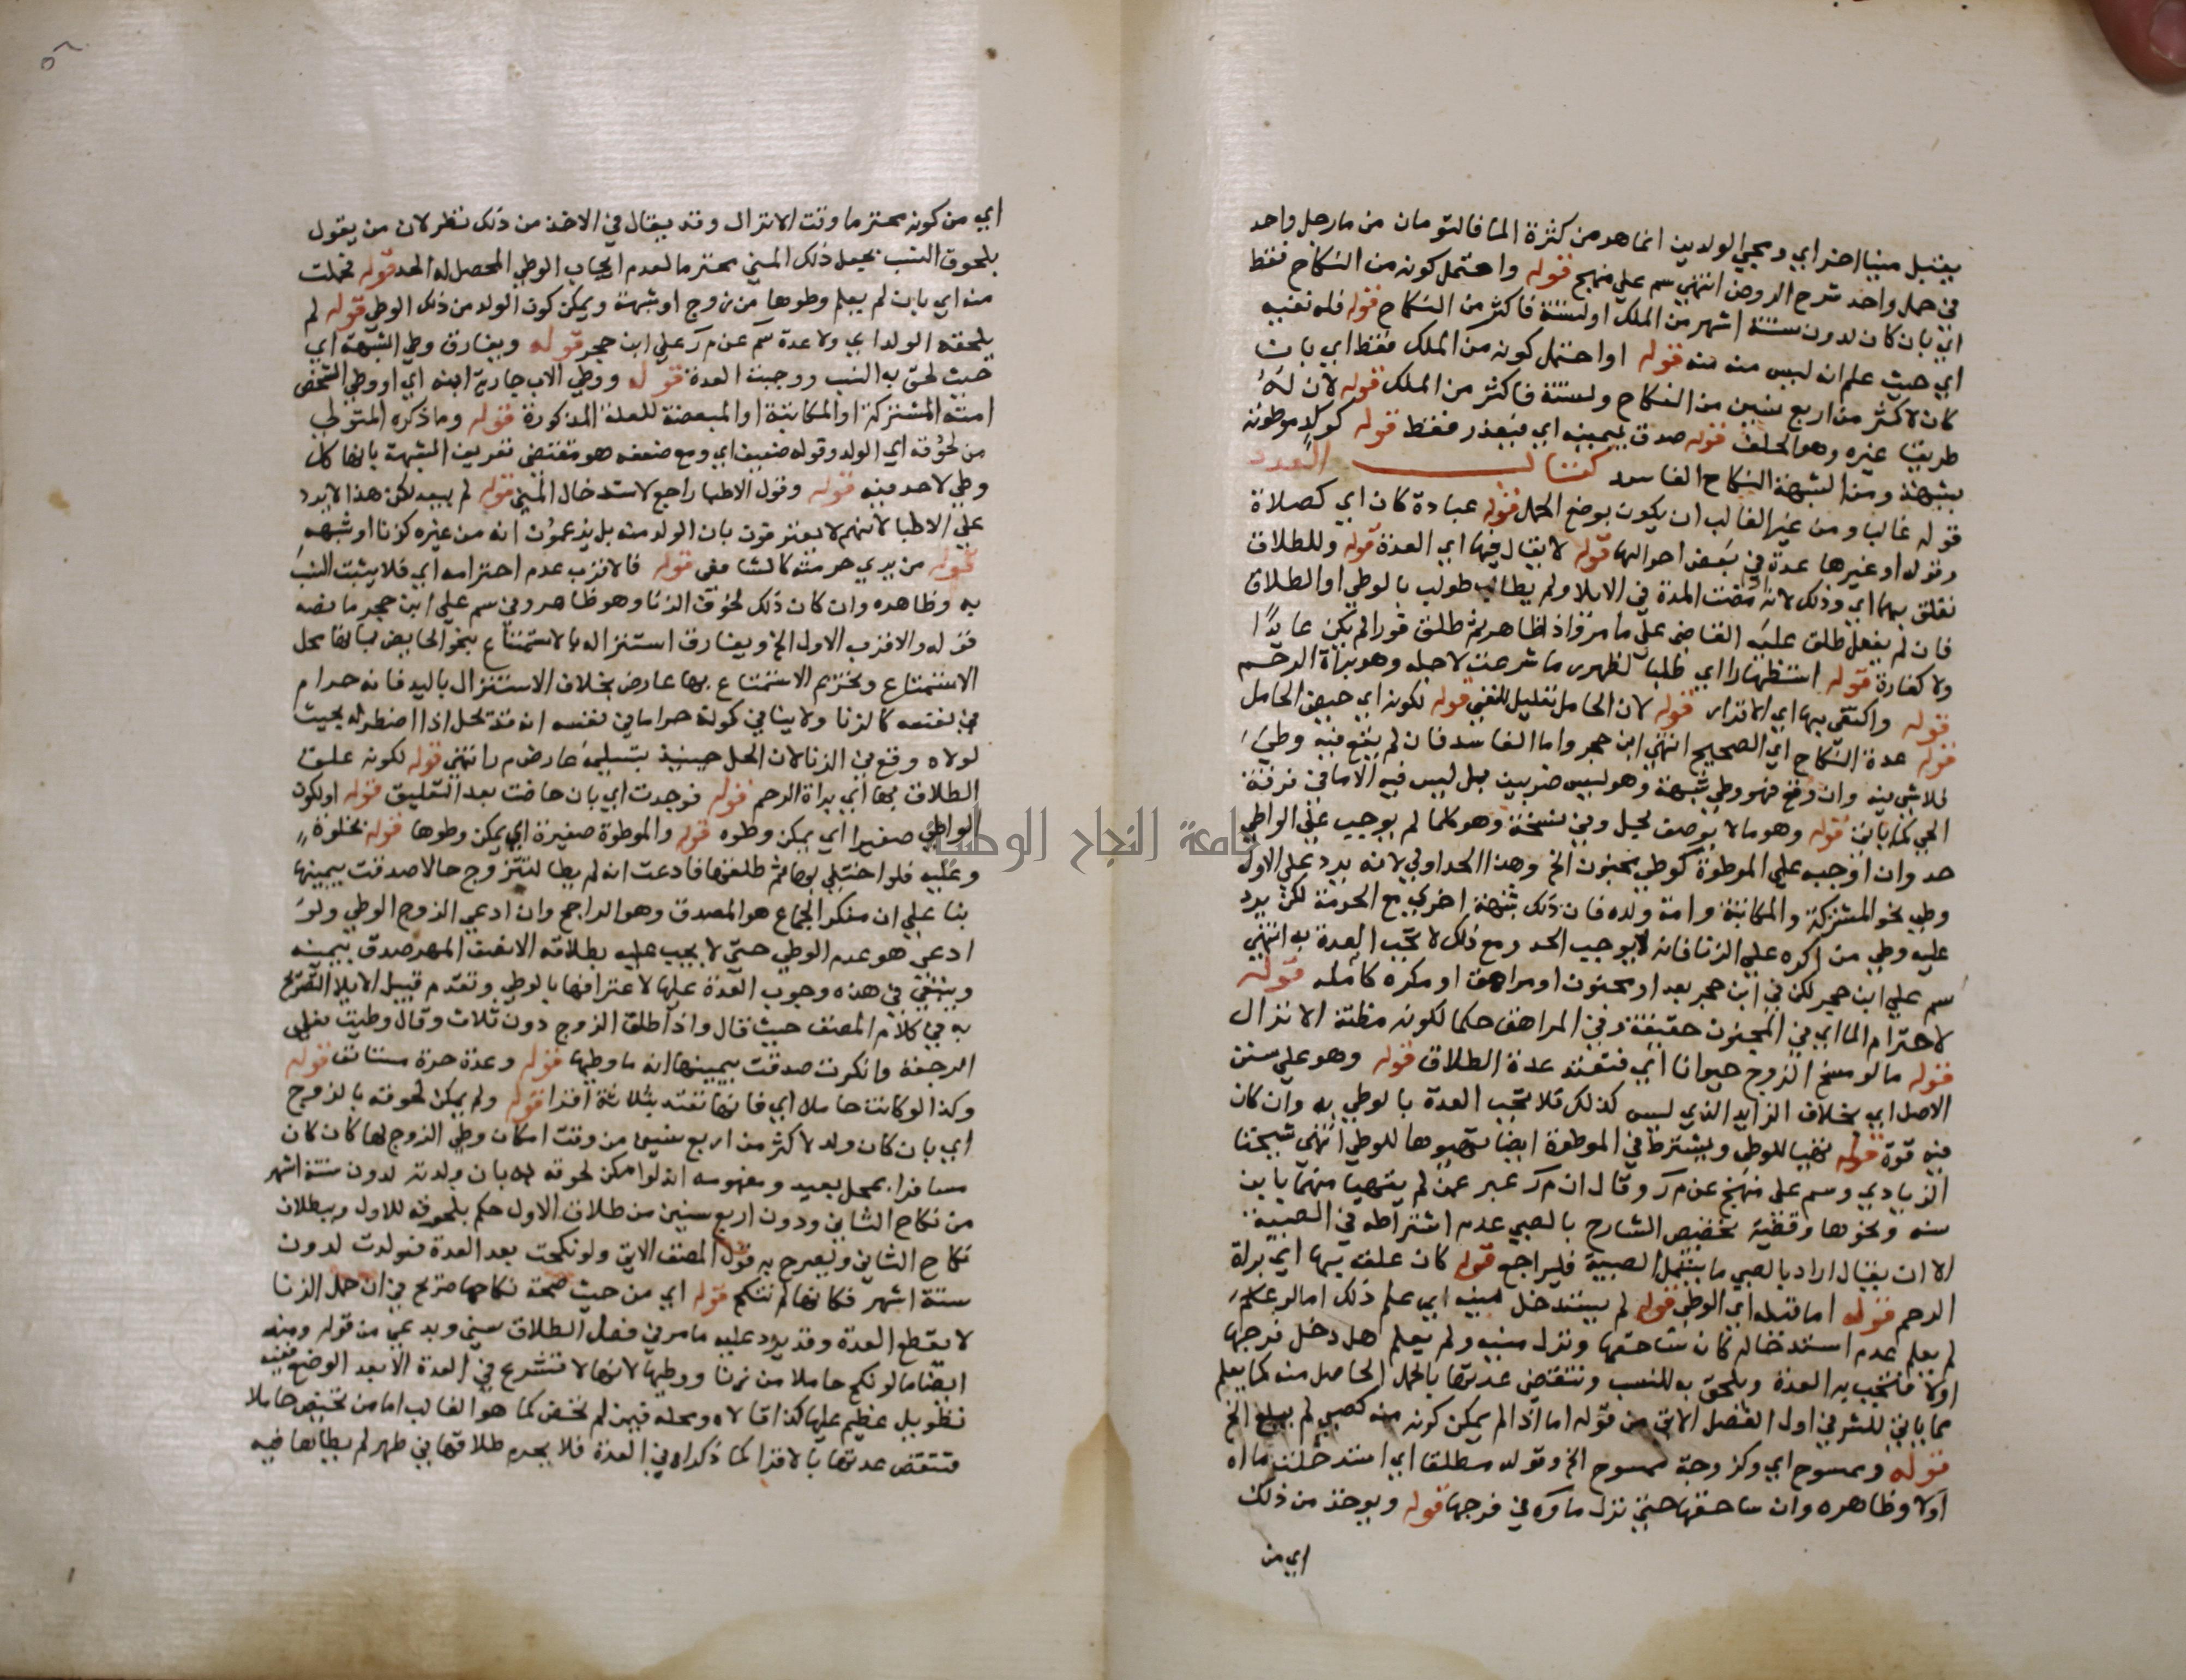 يقبل منيا اخر اي ومجي الولدين انما هو من كثرة الما فالتومان من ما رجل واحد
في حمل واحد شرح الروض انتهي سم علي منهج قوله واحتمل كونه من النكاح فقط
اي بان كان لدون ستة اشهر من الملك او لستة فاكثر من النكاح قوله فله نفيه
اي حيث علم انه ليس منه قوله او احتمل كونه من الملك فقط اي بان
كان لاكثر من اربع سنين من النكاح ولستة فاكثر من الملك قوله لان له
طريقا غيره وهو الحلف قوله صدق بيمينه اي فيعذر فقط قوله كولد موطوئة
بشبهة ومن الشبهة النكاح الفاسد كتاب العدد
قوله غالبا ومن غير الغالب ان يكون بوضع الحمل قوله عبادة كان اي كصلاة
وقوله او غيرها عدة في بعض احوالها قوله لا يقال فيها اي العدة قوله وللطلاق
تعلق بهما اي وذلك لانه اذا مضت المدة في الايلا ولم يطا طولب بالوطي او الطلاق
فان لم يفعل طلق عليه القاضي علي ما مر واذا ظاهر ثم طلق فورا لم يكن عايدا
ولا كفارة قوله استظهارا اي طلبا لظهور ما شرعت لاجله وهو براة الرحم
قوله واكتفي بها اي الاقراء قوله لان الحامل تعليل للنفي قوله لكونه اي حيض الحامل
قوله عدة النكاح اي الصحيح انتهي ابن حجر واما الفاسد فان لم يقع فيه وطي
فلا شي فيه وان وقع فهو وطي شبهة وهو ليس ضربين بل ليس فيه الا ما في فرقة
الحي كما ياتي قوله وهو ما لا يوصف بحل وفي نسخة وهو كلما لم يوجب علي الواطي
حد وان اوجبه علي الموطوة كوطي مجنون الخ وهذا الحد اولي لانه يرد علي الاول
وطي نحو المشتركة والمكاتبة وامة ولده فان ذلك شبهة اخري مع الحرمة لكن يرد
عليه وطي من اكره علي الزنا فانه لا يوجب الحد ومع ذلك لا تجب العدة به انتهي
سم علي ابن حجر لكن في ابن حجر بعد او مجنون او مراهق او مكره كامله قوله
لاحترام الما اي في المجنون حقيقة وفي المراهق حكما لكونه مظنة الانزال
قوله ما لو مسخ الزوج حيوانا اي فتعتد عدة الطلاق قوله وهو علي سنن
الاصل اي بخلاف الزايد الذي ليس كذلك فلا تجب العدة بالوطي به وان كان
فيه قوة قوله تهيا للوطي ويشترط في الموطوة ايضا تهيوها للوطي انتهي شيخنا
الزيادي وسم علي منهج عن م ر وقال ان م ر عبر عمن لم يتهيا منهما بابن
سنه ونحوها وقضية تخصيص الشارح بالصبي عدم اشتراطه في الصبية
الا ان يقال اراد بالصبي ما يشمل الصبية فليراجع قوله كان علق بها اي براة
الرحم قوله اما قبله اي الوطي قوله لم يستدخل منيه اي علم ذلك اما لو علم
لم يعلم عدم استدخاله كان ساحقها ونزل منيه ولم يعلم هل دخل فرجها
اولا فتجب به العدة ويلحق به النسب وتنقضي عدتها بالحمل الحاصل منه كما يعلم
مما ياتي للشر في اول الفصل الاتي من قوله اما اذا لم يمكن كونه منه كصبي لم يبلغ الخ
قوله وممسوح اي وكزوجة ممسوح الخ وقوله مطلقا اي استدخلت ماه
اولا وظاهره وان ساحقها حتي نزل ماوه في فرجها قوله ويوخذ من ذلك
اي من
اي من كونه محترما وقت الانزال وقد يقال في الاخذ من ذلك نظر لان من يقول
بلحوق النسب يجعل ذلك المني محترما لعدم ايجاب الوطي المحصل له الحد قوله فحملت
منه اي بان لم يعلم وطوها من زوج او شبهة ويمكن كون الولد من ذلك الوطي قوله لم
يلحقه الولد اي ولا عدة سم عن م ر علي ابن حجر قوله ويفارق وطي الشبهة اي
حيث لحق به النسب ووجبت العدة قوله ووطي الاب جارية ابنه اي او وطي الشخص
امته المشتركة او المكاتبة او المبعضة للعلة المذكورة قوله وما ذكره المتولي
من لحوقه اي الولد وقوله ضعيف اي ومع ضعفه هو مقتضي تعريف الشبهة بانها كل
وطي لا حد فيه قوله وقول الاطبا راجع لاستدخال المني قوله لم يبعد لكن هذا لا يرد
علي الاطبا لانهم لا يعترفون بان الولد منه بل يزعمون انه من غيره كزنا او شبهه
قوله من يري حرمته كالشافعي قوله فالاقرب عدم احترامه اي فلا يثبت النسب
به وظاهره وان كان ذلك لخوف الزنا وهو ظاهر وفي سم علي ابن حجر ما نصه
قوله والاقرب الاول الخ ويفارق استنزاله بالاستمتاع بنحو الحايض بانها محل
الاستمتاع وتحريم الاستمتاع بها عارض بخلاف الاستنزال باليد فانه حرام
في نفسه كالزنا ولا ينافي كونه حراما في نفسه انه قد يحل اذا اضطر له بحيث
لولاه وقع في الزنا لان الحل حينيذ بتسليمه عارض م ر انتهي قوله لكونه علق
الطلاق بها اي براة الرحم قوله فوجدت اي بان حاضت بعد التعليق قوله او لكون
الواطي صغيرا اي يمكن وطوه قوله والموطوة صغيرة اي يمكن وطوها قوله بخلوة
وعليه فلو اختلي بها ثم طلقها فادعت انه لم يطا لتتزوج حالا صدقت بيمينها
بنا علي ان منكر الجماع هو المصدق وهو الراجح وان ادعي الزوج الوطي ولو
ادعي هو عدم الوطي حتي لا يجب عليه بطلاقه الا نصف المهر صدق بيمينه
وينبغي في هذه وجوب العدة عليها لاعترافها بالوطي وتقدم قبيل الايلا التصريح
به في كلام المصنف حيث قال واذا طلق الزوج دون ثلاث وقال وطيت فلي
الرجعة وانكرت صدقت بيمينها انه ما وطيها قوله وعدة حرة مستانف قوله
وكذا لو كانت حاملا اي فانها تعتد بثلاثة اقرا قوله ولم يمكن لحوقه بالزوج
اي بان كان ولد لاكثر من اربع سنين من وقت امكان وطي الزوج لها كان كان
مسافرا بمحل بعيد ومفهومه انه لو امكن لحوقه به بان ولدته لدون ستة اشهر
من نكاح الثاني ودون اربع سنين من طلاق الاول حكم بلحوقه للاول وببطلان
نكاح الثاني ويصرح به قول المصنف الاتي ولو نكحت بعد العدة فولدت لدون
ستة اشهر فكانها لم تنكح قوله اي من حيث صحة نكاحها صريح في ان حمل الزنا
لا يقطع العدة وقد يرد عليه ما مر في فصل الطلاق سني وبدعي من قوله ومنه
ايضا ما لو نكح حاملا من زنا ووطيها لانها لا تشرع في العدة الا بعد الوضع ففيه
تطويل عظيم عليها كذا قالاه ومحله فيمن لم تحض كما هو الغالب اما من تحيض حاملا
فتنقضي عدتها بالاقرا كما ذكراه في العدة فلا يحرم طلاقها في طهر لم يطاها فيه
جامعة النجاح الوطنية